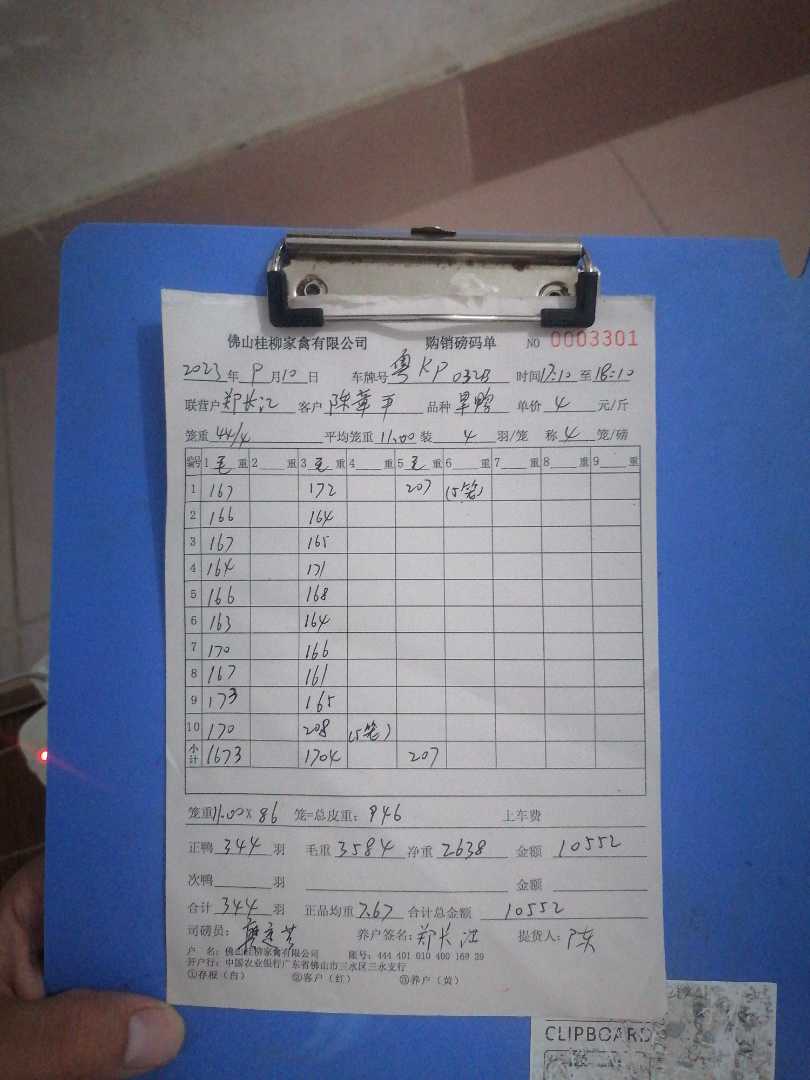 佛山桂柳家禽有限公司 购销磅码单 NO 0003301
2023年9月10日 车牌号粤KP032B 时间17:10至18:10
联营户郑长江 客户陈華平 品种旱鸭 单价4元/斤
笼重44/4 平均笼重11.00装4羽/笼 称4笼/磅
编号 1毛重 2重 3毛重 4重 5毛重 6重 7重 8重 9重
1 167 172 207 (5笼)
2 166 164
3 167 165
4 164 171
5 166 168
6 163 164
7 170 166
8 167 161
9 173 165
10 170 208 (5笼)
小计 1673 1704 207
笼重11.00×86笼=总皮重：946 上车费
正鸭344羽 毛重3584净重2638 金额10552
次鸭羽 金额
合计344羽 正品均重7.67合计总金额10552
司磅员： 养户签名：郑长江 提货人：陈
户 名：佛山桂柳家禽有限公司 账号：444 401 010 400 169 29
开户行：中国农业银行广东省佛山市三水区三水支行
①存根（白） ②客户（红） ③养户（黄）
CLIPBOARD